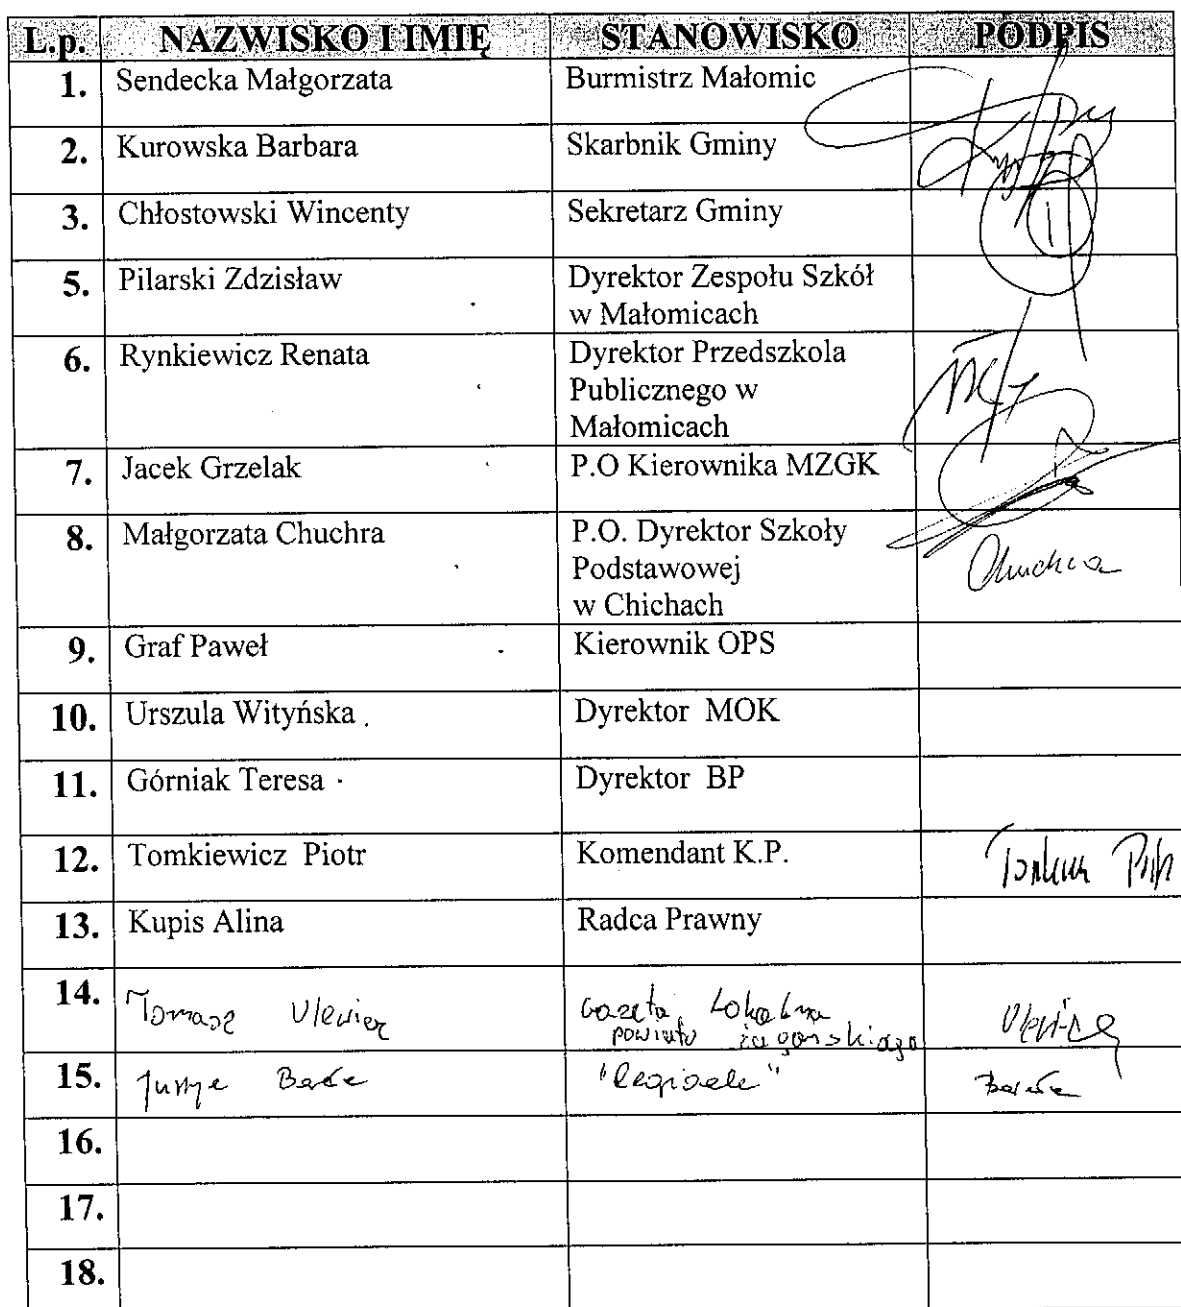 L.p. NAZWISKO I IMIĘ STANOWISKO PODPIS
1. Sendecka Małgorzata Burmistrz Małomic
2. Kurowska Barbara Skarbnik Gminy
3. Chłostowski Wincenty Sekretarz Gminy
5. Pilarski Zdzisław Dyrektor Zespołu Szkół
w Małomicach
6. Rynkiewicz Renata Dyrektor Przedszkola
Publicznego w
Małomicach
7. Jacek Grzelak P.O Kierownika MZGK
8. Małgorzata Chuchra P.O. Dyrektor Szkoły
Podstawowej
w Chichach
9. Graf Paweł Kierownik OPS
10. Urszula Wityńska Dyrektor MOK
11. Górniak Teresa Dyrektor BP
12. Tomkiewicz Piotr Komendant K.P.
13. Kupis Alina Radca Prawny
14. Tomasz Gazeta Lokalna
powiatu żagańskiego
15.
16.
17.
18.